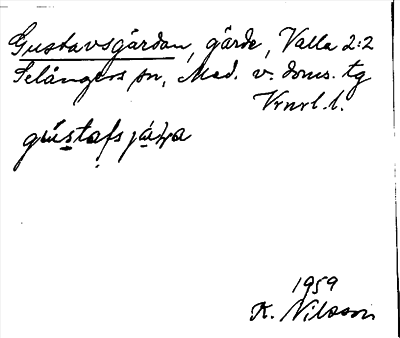 Gustavsgärdan, gärde, Valla 2:2
Selångers sn, Med. v. doms. tg
Vrnrl. l.
gústafsjäʹḷa
1959
K. Nilsson